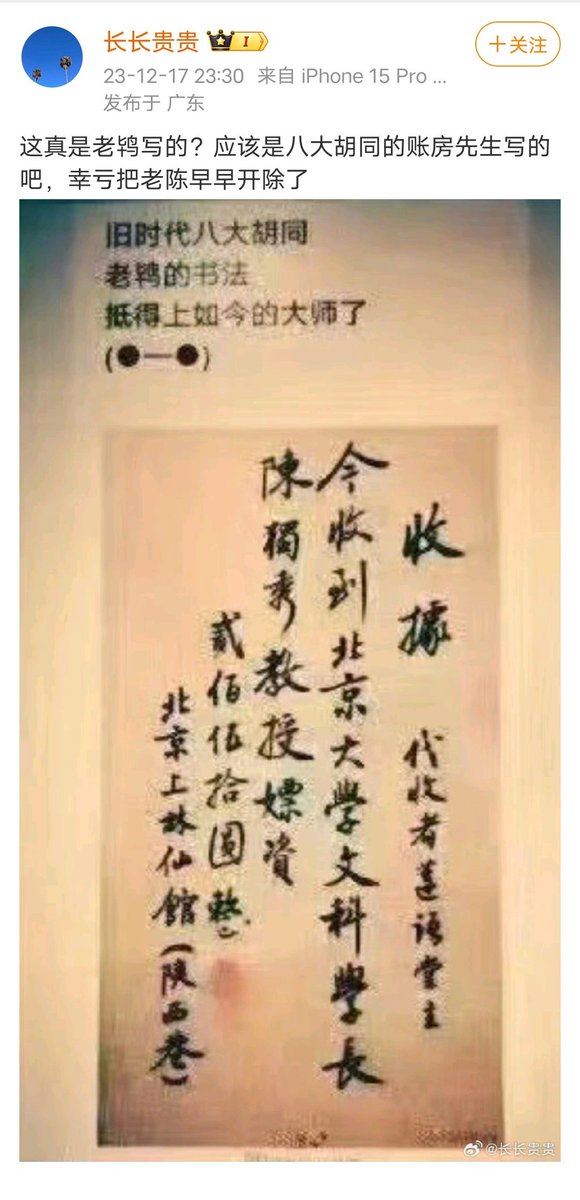 长长贵贵
I
+关注
23-12-17 23:30 来自 iPhone 15 Pro ...
发布于 广东
这真是老鸨写的？应该是八大胡同的账房先生写的
吧，幸亏把老陈早早开除了
旧时代八大胡同
老鸨的书法
抵得上如今的大师了
(●—●)
收據
代收者莲语堂主
今收到北京大學文科學長
陳獨秀教授嫖資
貳佰伍拾圓整
北京上林仙館(陝西巷)
@长长贵贵